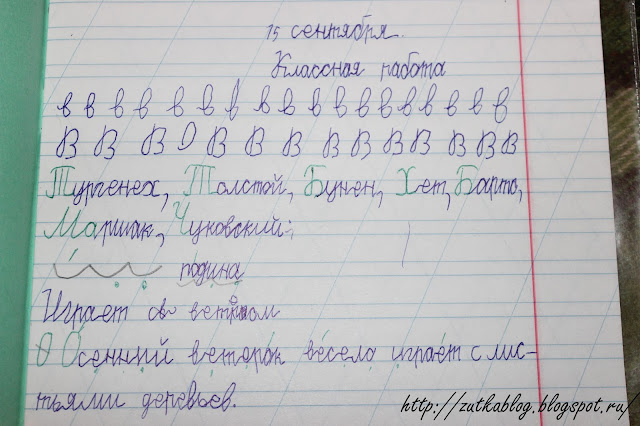 15 сентября.
Классная работа
в в в в в в в в в в в в в в в в в в
В В В О В В В В В В В В В В
Тургенех, Толстой, Бунен, Хет, Барто,
Маршак, Чуковский.
родина
Играет с ветром
О Осенний ветерок весело играет с лис-
тьями деревьев.
http://zutkablog.blogspot.ru/